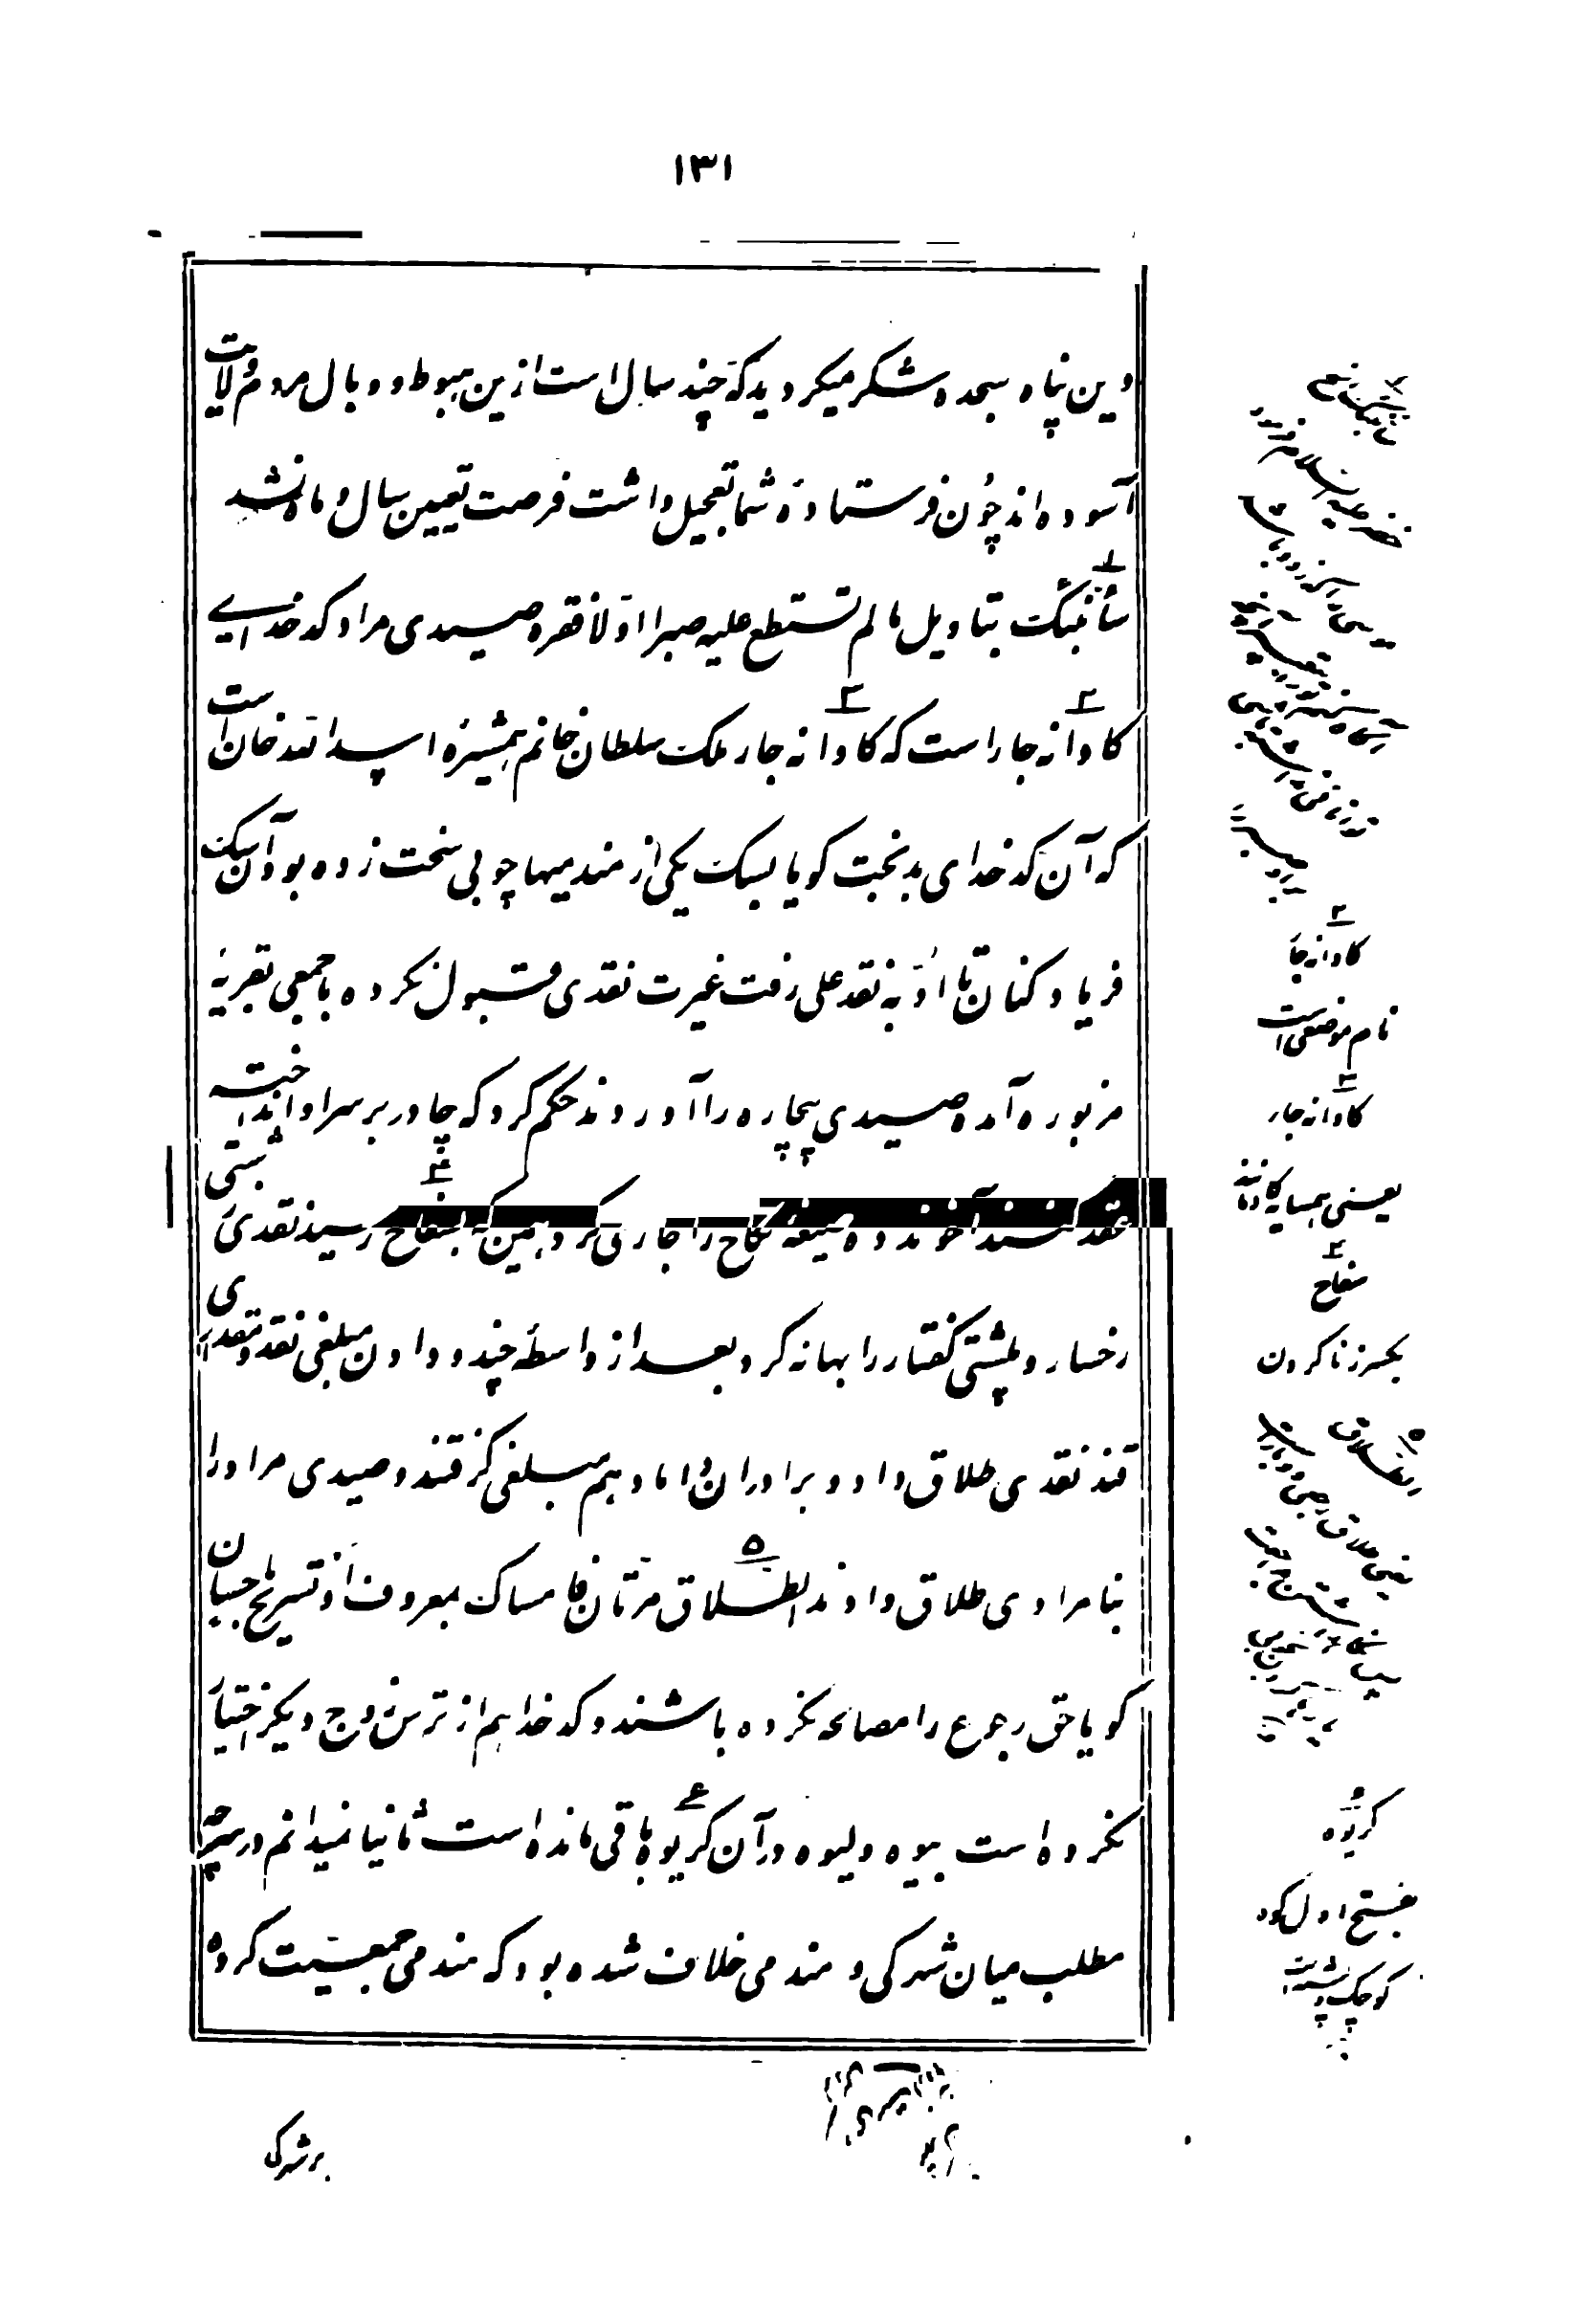 ۱۳۱
دین پناه سجده شکر میکردید که چند سال است ازین هبوط و وبال مردم ولایت
آسوده اند چون فرستاده شما تعجیل داشت فرصت تعیین سال و ماه نشد
سأنبئک بتاویل ما لم تستطع علیه صبرا اولا فقره صیدی مراد کدخدایی
کاوانه جار است که کاوانه جار ملک سلطان خانم همشیره اسدالله خان است
که آن کدخدای بدبخت گویا بسک یکی از مندمیها چوبی سخت زده بود آن سک
فریاد کنان تا اوبه نقدعلی رفت غیرت نقدی قبول نکرده با جمعی بقریه
مزبوره آمده صیدی بیچاره را آوردند حکم کرد که چادر بر سر او انداخته
صیغه نکاح را جاری کرد همین که بسفاح رسید نقدی زشتی
رخسار و پلشتی گفتار را بهانه کرد بعد از واسطه چند و دادن مبلغی نقد و نقد را
قند نقدی طلاق داد و برادران داماد هم مبلغی گرفتند و صیدی مراد را
بنامرادی طلاق دادند الطلاق مرتان فامساک بمعروف او تسریح باحسان
گویا حق رجوع را مصالحه نکرده باشند و کدخدا هم از ترس زوج دیگر اختیار
نکرده است بیوه و لیوه در آن کریوه باقی مانده است ثانیا نمیدانم در سر چه
مطلب میان شرکی و مندمی خلاف شده بود که مندمی جمعیت کرده
بر شرکی
۲
کاوانه جا
نام موضعی است
۳
کاوانه جار
یعنی همسایه کاوانه
۴
سفاح
بکسر زنا کردن
۵
کریوه
بفتح اول کوه
کوچک و پشته است